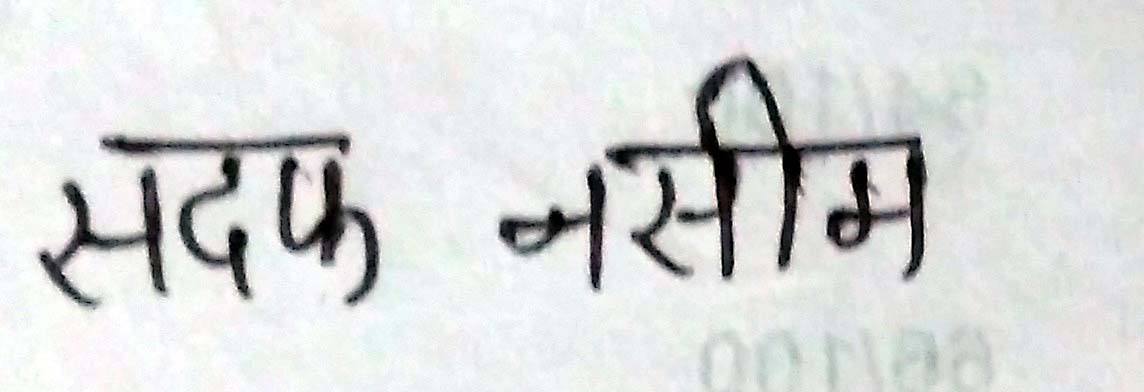 सदफ नसीम